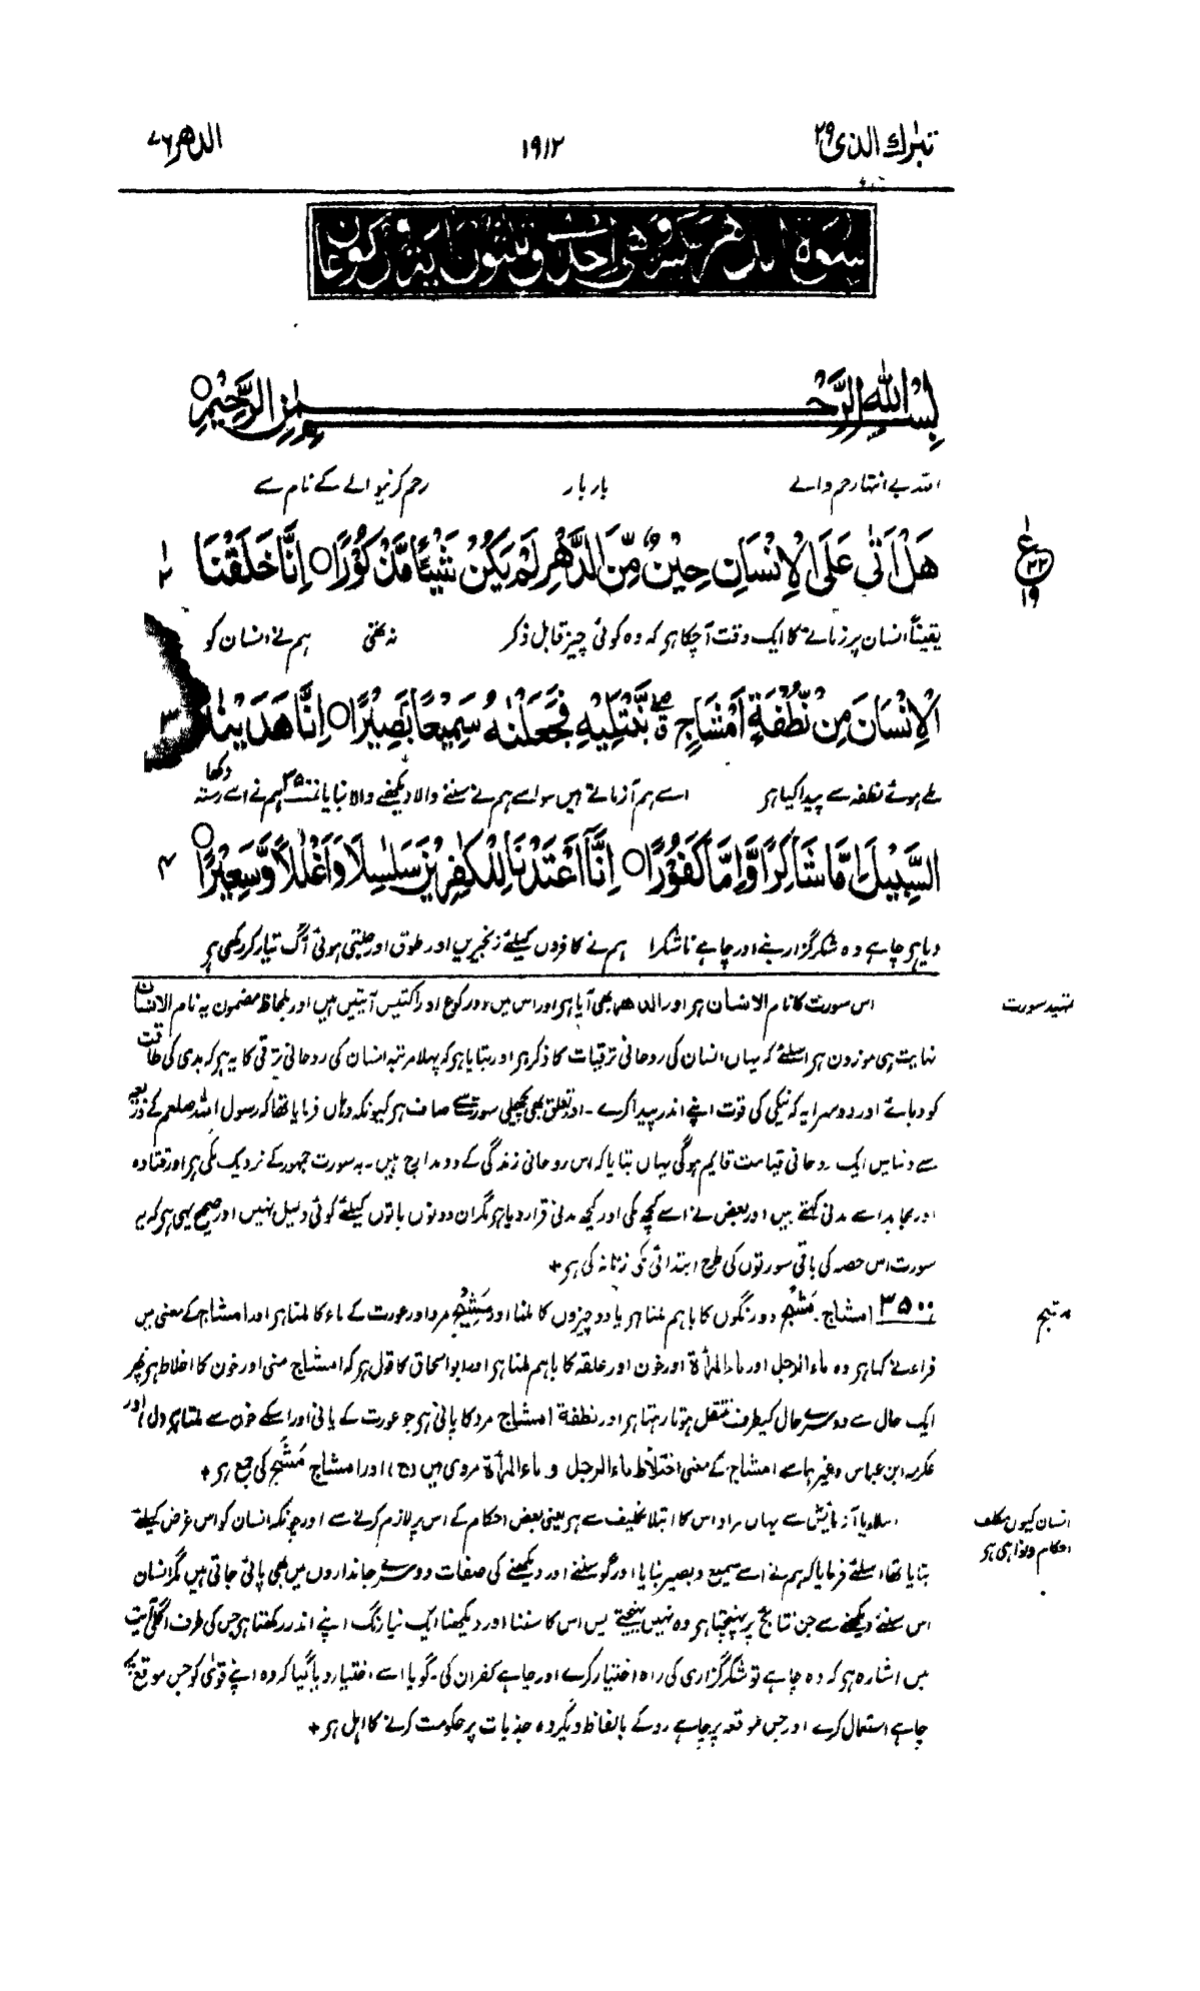 تبٰرك الذی ۲۹
۱۹۱۲
الدهر ۷۶
سورة الدهر مكية وهی احدی وثلثون اية وركوعان
بِسْمِ اللّٰهِ الرَّحْمٰنِ الرَّحِيْمِ ○
اللہ بے انتہا رحم والے بار بار رحم کرنیوالے کے نام سے
هَلْ اَتٰى عَلَى الْاِنْسَانِ حِيْنٌ مِّنَ الدَّهْرِ لَمْ يَكُنْ شَيْئًا مَّذْكُوْرًا ○ اِنَّا خَلَقْنَا
ع ۲۲ ۱۹
یقیناً انسان پر زمانے کا ایک وقت آچکا ہو کہ وہ کوئی چیز قابل ذکر نہ تھی ہم نے انسان کو
الْاِنْسَانَ مِنْ نُّطْفَةٍ اَمْشَاجٍ نَّبْتَلِيْهِ فَجَعَلْنٰهُ سَمِيْعًا بَصِيْرًا ○ اِنَّا هَدَيْنٰهُ
ملے ہوئے نطفہ سے پیدا کیا ہو اسے ہم آزماتے ہیں سو اسے ہم نے سننے والا دیکھنے والا بنایا ۳۵۰۰ ہم نے اسے رستہ دکھا
السَّبِيْلَ اِمَّا شَاكِرًا وَّاِمَّا كَفُوْرًا ○ اِنَّآ اَعْتَدْنَا لِلْكٰفِرِيْنَ سَلٰسِلَا۟ وَاَغْلٰلًا وَّسَعِيْرًا ○ ۴
دیا ہو چاہے وہ شکر گزار بنے اور چاہے ناشکرا ہم نے کافروں کیلئے زنجیریں اور طوق اور جلتی ہوئی آگ تیار کر رکھی ہو
تمہید سورت
اس سورت کا نام الانسان ہو اور الدھر بھی آیا ہو اور اس میں دو رکوع اور اکتیس آیتیں ہیں اور بلحاظ مضمون یہ نام الانسان
نہایت ہی موزون ہو اسلئے کہ یہاں انسان کی روحانی ترقیات کا ذکر ہو اور بتایا ہو کہ پہلا مرتبہ انسان کی روحانی ترقی کا یہ ہو کہ بدی کی طاقت
کو دبائے اور دوسرا یہ کہ نیکی کی قوت اپنے اندر پیدا کرے ۔ اور تعلق بھی پچھلی سورت سے صاف ہو کیونکہ وہاں فرمایا تھا کہ رسول اللہ صلعم کے ذریعہ
سے دنیا میں ایک روحانی قیامت قایم ہوگی یہاں بتایا کہ اس روحانی زندگی کے دو مدارج ہیں ۔ یہ سورت جمہور کے نزدیک مکی ہو اور قتادہ
اور مجاہد اسے مدنی کہتے ہیں اور بعض نے اسے کچھ مکی اور کچھ مدنی قرار دیا ہو مگر ان دونوں باتوں کیلئے کوئی دلیل نہیں اور صحیح یہی ہو کہ یہ
سورت اس حصہ کی باقی سورتوں کی طرح ابتدائی مکی زمانہ کی ہو +
مشج
۳۵۰۰ امشاج ۔ مَشْج دو رنگوں کا باہم ملنا ہو یا دو چیزوں کا ملنا اور مَشِیْج مرد اور عورت کے ماء کا ملنا ہو اور امشاج کے معنی میں
فراء نے کہا ہو وہ ماء الرجل اور ماء المرأة اور خون اور علقہ کا باہم ملنا ہو اور ابو اسحاق کا قول ہو کہ امشاج منی اور خون کا اختلاط ہو پھر
ایک حال سے دوسرے حال کیطرف منتقل ہوتا رہتا ہو اور نطفة امشاج مرد کا پانی ہو جو عورت کے پانی اور اسکے خون سے ملتا ہو (ل) اور
عکرمہ ابن عباس وغیرہما سے امشاج کے معنی اختلاط ماء الرجل و ماء المرأة مروی ہیں (ج) اور امشاج مَشَج کی جمع ہو +
انسان کیوں مکلف
احکام و نواہی ہو
ابتلاء یا آزمایش سے یہاں مراد اس کا ابتلا تکلیف سے ہو یعنی بعض احکام کے اس پر لازم کرنے سے اور چونکہ انسان کو اس غرض کیلئے
بنایا تھا اسلئے فرمایا کہ ہم نے اسے سمیع و بصیر بنایا اور گو سننے اور دیکھنے کی صفات دوسرے جانداروں میں بھی پائی جاتی ہیں مگر انسان
اس سننے دیکھنے سے جن نتائج پر پہنچتا ہو وہ نہیں پہنچتے پس اس کا سننا اور دیکھنا ایک نیا رنگ اپنے اندر رکھتا ہو جس کی طرف اگلی آیت
میں اشارہ ہو کہ وہ چاہے تو شکر گزاری کی راہ اختیار کرے اور چاہے کفران کی ۔ گویا اسے اختیار دیا گیا کہ وہ اپنے قویٰ کو جس موقع پر
چاہے استعمال کرے اور جس موقعہ پر چاہے روکے بالفاظ دیگر وہ جذبات پر حکومت کرنے کا اہل ہو +